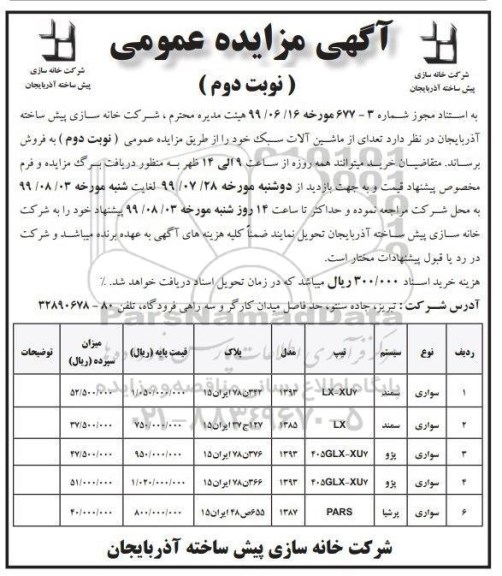 آگهی مزایده عمومی
( نوبت دوم )
شرکت خانه سازی
پیش ساخته آذربایجان
شرکت خانه سازی
پیش ساخته آذربایجان
به استناد مجوز شماره ۳ - ۶۷۷ مورخه ۹۹/۰۶/۱۶ هیئت مدیره محترم ، شرکت خانه سازی پیش ساخته
آذربایجان در نظر دارد تعدای از ماشین آلات سبک خود را از طریق مزایده عمومی ( نوبت دوم ) به فروش
برساند. متقاضیان خرید میتوانند همه روزه از ساعت ۹ الی ۱۴ ظهر به منظور دریافت برگ مزایده و فرم
مخصوص پیشنهاد قیمت و به جهت بازدید از دوشنبه مورخه ۹۹/۰۷/۲۸ لغایت شنبه مورخه ۹۹/۰۸/۰۳
به محل شرکت مراجعه نموده و حداکثر تا ساعت ۱۴ روز شنبه مورخه ۹۹/۰۸/۰۳ پیشنهاد خود را به شرکت
خانه سازی پیش ساخته آذربایجان تحویل نمایند ضمناً کلیه هزینه های آگهی به عهده برنده میباشد و شرکت
در رد یا قبول پیشنهادات مختار است.
هزینه خرید اسناد ۳۰۰/۰۰۰ ریال میباشد که در زمان تحویل اسناد دریافت خواهد شد. ٪
آدرس شرکت : تبریز، جاده سنتو، حد فاصل میدان کارگر و سه راهی فرودگاه، تلفن ۸۰ - ۳۲۸۹۰۶۷۸
ردیف نوع سیستم تیپ مدل پلاک قیمت پایه (ریال) میزان سپرده (ریال) توضیحات
۱ سواری سمند LX-XU7 ۱۳۹۳ ۳۴۳ن۷۸ ایران۱۵ ۱/۰۵۰/۰۰۰/۰۰۰ ۵۲/۵۰۰/۰۰۰
۲ سواری سمند LX ۱۳۸۵ ۱۲۷ج۳۷ ایران۱۵ ۷۵۰/۰۰۰/۰۰۰ ۳۷/۵۰۰/۰۰۰
۳ سواری پژو ۴۰۵GLX-XU7 ۱۳۹۳ ۳۷۶ن۷۸ ایران۱۵ ۹۵۰/۰۰۰/۰۰۰ ۴۷/۵۰۰/۰۰۰
۴ سواری پژو ۴۰۵GLX-XU7 ۱۳۹۳ ۳۶۶ن۷۸ ایران۱۵ ۱/۰۲۰/۰۰۰/۰۰۰ ۵۱/۰۰۰/۰۰۰
۶ سواری پرشیا PARS ۱۳۸۷ ۶۵۵ص۴۸ ایران۱۵ ۸۰۰/۰۰۰/۰۰۰ ۴۰/۰۰۰/۰۰۰
ParsNamadData
پایگاه اطلاع رسانی مناقصه و مزایده
۰۲۱-۸۸۳۴۹۶۷۰-۵
شرکت خانه سازی پیش ساخته آذربایجان